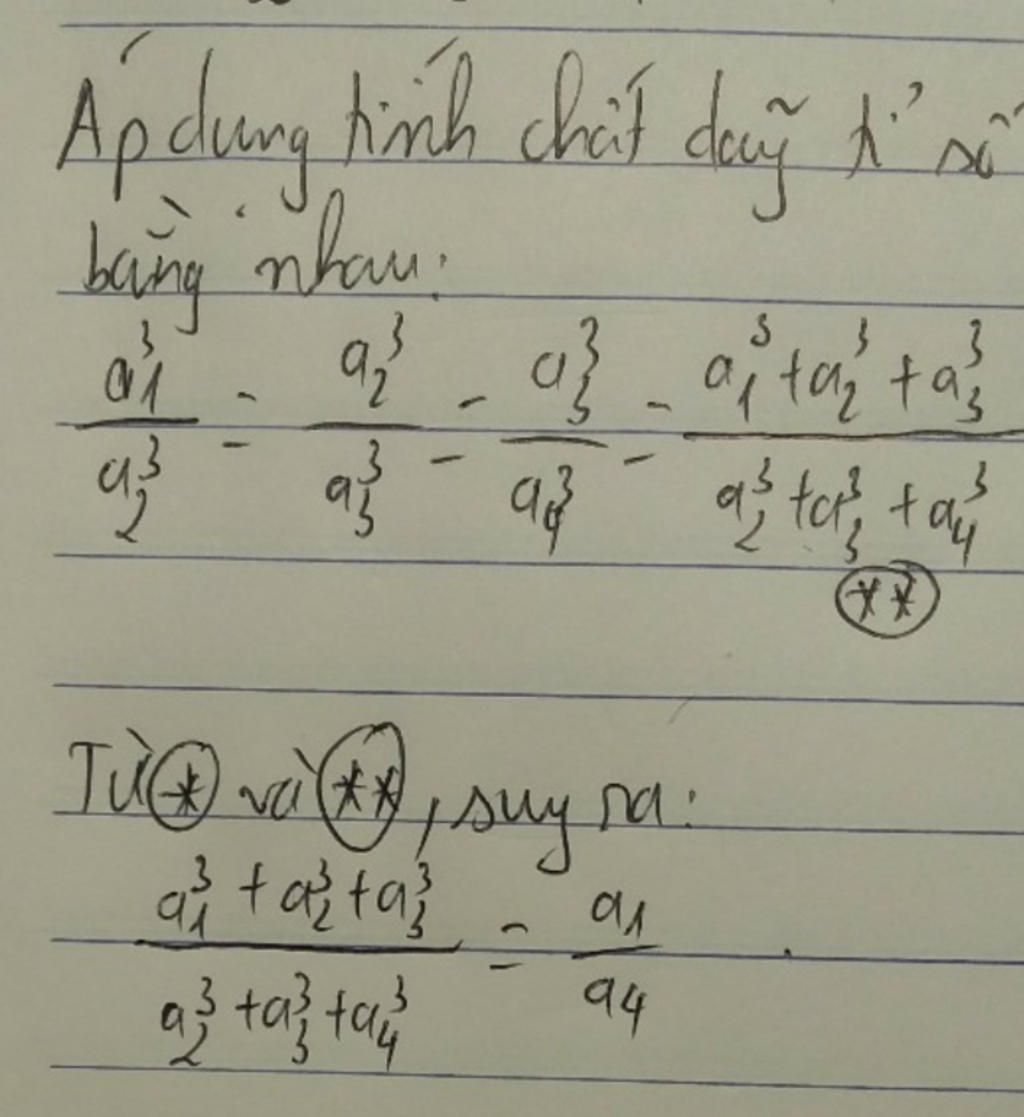 Áp dụng tính chất dãy tỉ số
bằng nhau:
a₁³/a₂³ = a₂³/a₃³ = a₃³/a₄³ = (a₁³ + a₂³ + a₃³)/(a₂³ + a₃³ + a₄³)
(**)
Từ (*) và (**), suy ra:
(a₁³ + a₂³ + a₃³)/(a₂³ + a₃³ + a₄³) = a₁/a₄ .